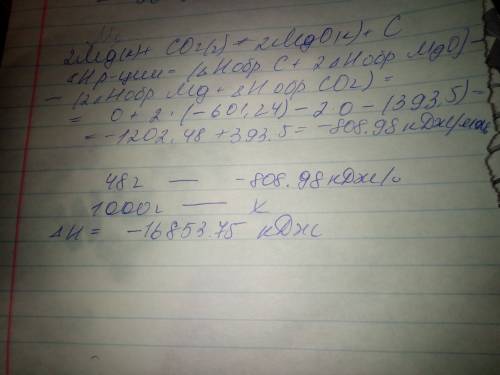 2Mg(к) + CO2(г) = 2MgO(к) + C
ΔHр-ции = (ΔHобр C + 2ΔHобр MgO) -
- (2ΔHобр Mg + ΔHобр CO2) =
= 0 + 2·(-601,24) - 2·0 - (393,5) =
= -1202,48 + 393,5 = -808,98 кДж/моль
48г — -808,98 кДж/
1000г — x
ΔH = -16853.75 кДж